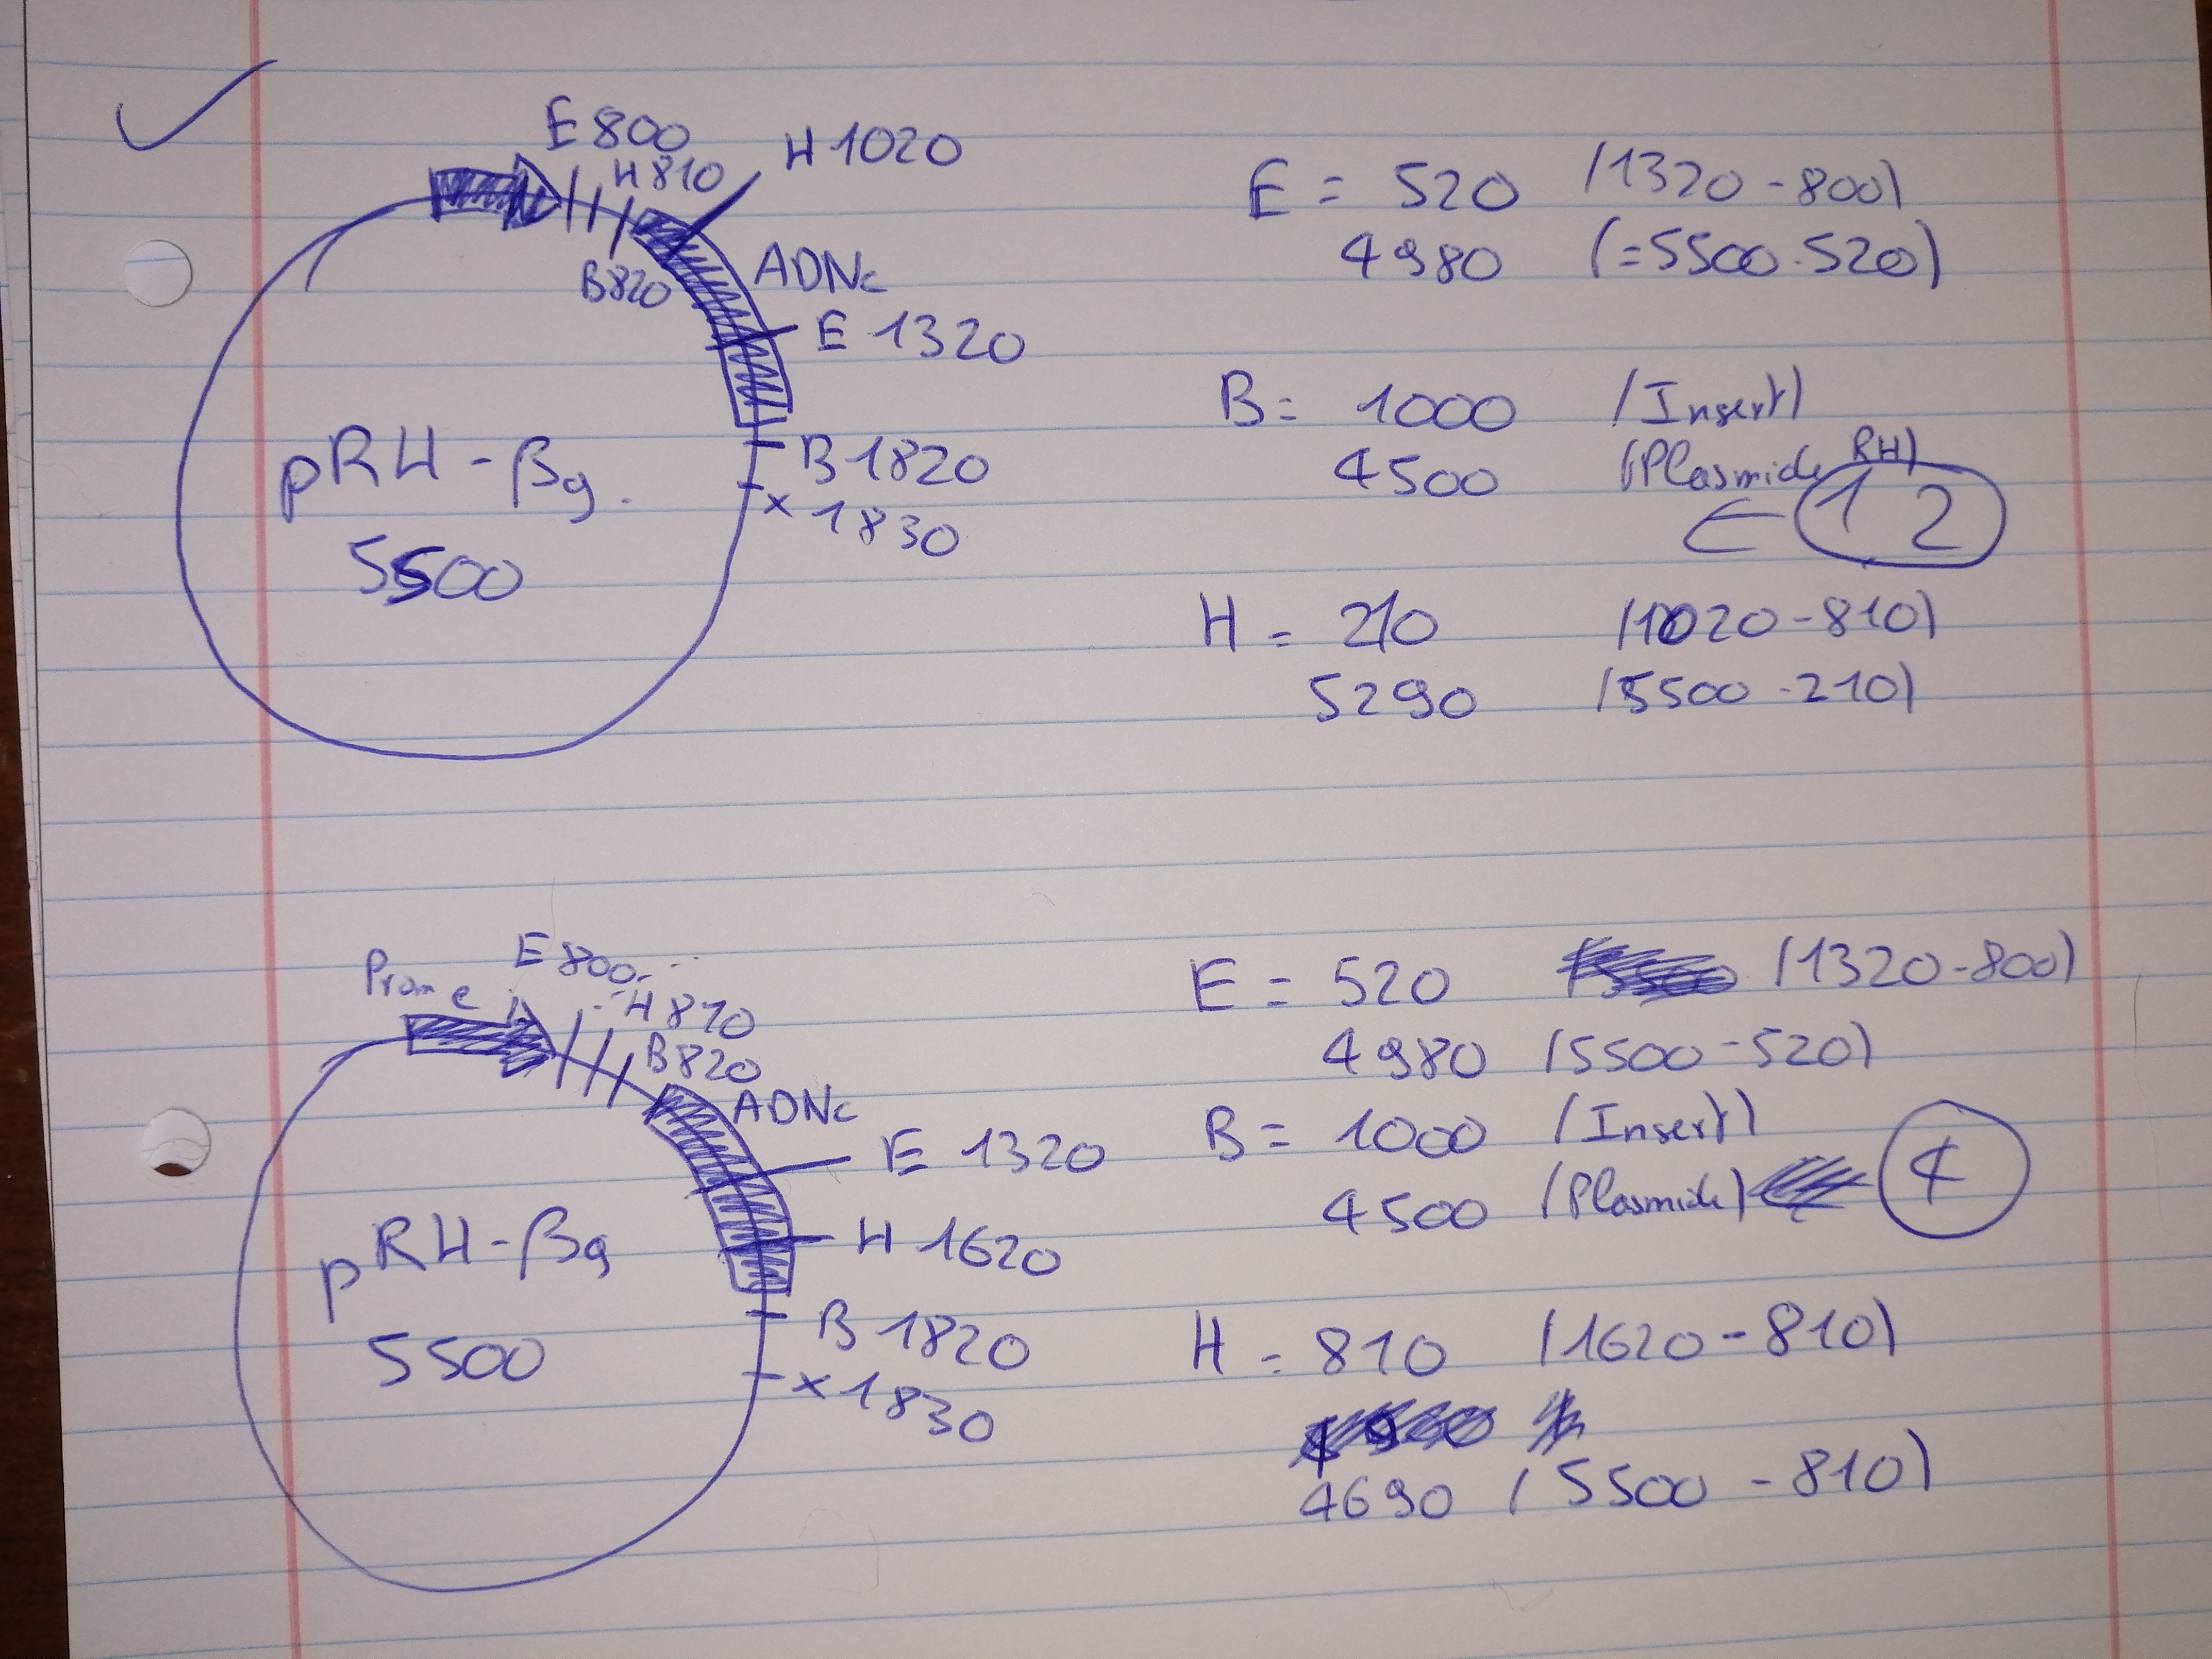 E 800
H 810
H 1020
B 820
ADNc
E 1320
pRH-βg.
5500
B 1820
x 1830
E = 520 (1320-800)
4980 (=5500-520)
B = 1000 (Insert)
4500 (Plasmide RH)
1 2
H = 210 (1020-810)
5290 (5500-210)
Prom
E 800
H 810
B 820
ADNc
E 1320
pRH-βg
5500
H 1620
B 1820
x 1830
E = 520 (1320-800)
4980 (5500-520)
B = 1000 (Insert)
4500 (Plasmide)
4
H = 810 (1620-810)
4690 (5500-810)